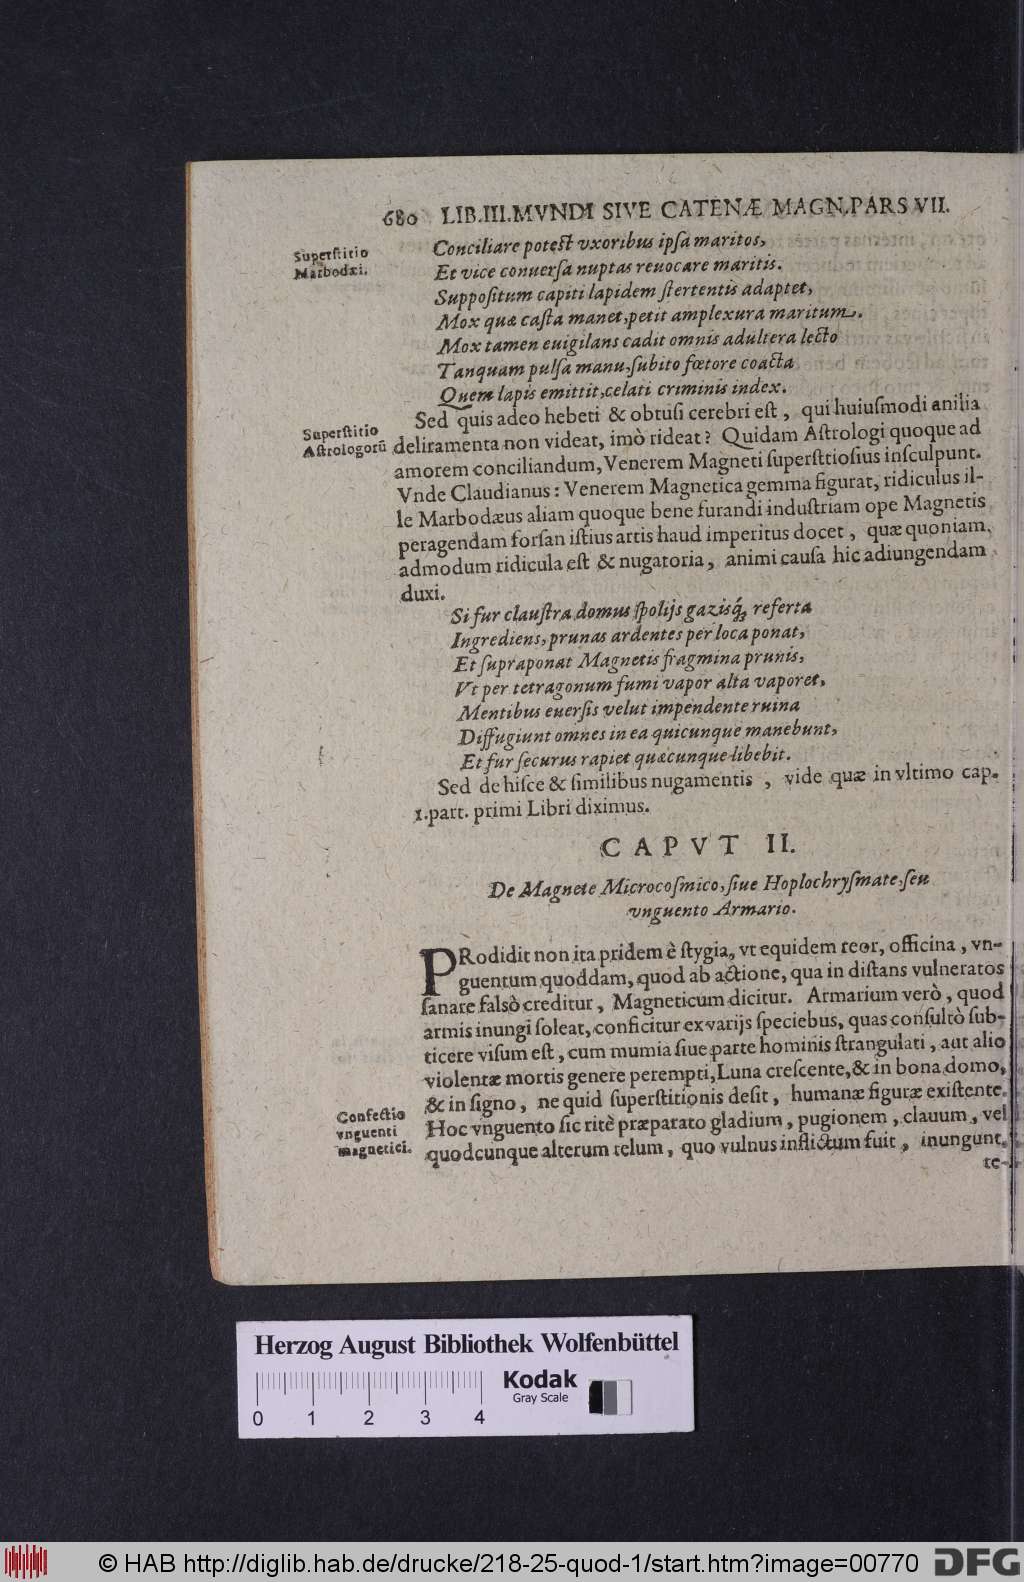 680 LIB.III.MVNDI SIVE CATENÆ MAGN.PARS VII.
Superſtitio
Marbodæi.
Conciliare poteſt vxoribus ipſa maritos,
Et vice conuerſa nuptas reuocare maritis.
Suppoſitum capiti lapidem ſtertentis adaptet,
Mox quæ caſta manet, petit amplexura maritum.
Mox tamen euigilans cadit omnis adultera lecto
Tanquam pulſa manu, ſubito fœtore coacta
Quem lapis emittit, celati criminis index.
Superſtitio
Aſtrologorũ
Sed quis adeo hebeti & obtuſi cerebri eſt, qui huiuſmodi anilia
deliramenta non videat, imò rideat? Quidam Aſtrologi quoque ad
amorem conciliandum, Venerem Magneti ſuperſttioſius inſculpunt.
Vnde Claudianus: Venerem Magnetica gemma figurat, ridiculus il-
le Marbodæus aliam quoque bene furandi induſtriam ope Magnetis
peragendam forſan iſtius artis haud imperitus docet, quæ quoniam
admodum ridicula eſt & nugatoria, animi cauſa hic adiungendam
duxi.
Si fur clauſtra domus ſpolijs gazisq́; referta
Ingrediens, prunas ardentes per loca ponat,
Et ſupraponat Magnetis fragmina prunis,
Vt per tetragonum fumi vapor alta vaporet,
Mentibus euerſis velut impendente ruina
Diffugiunt omnes in ea quicunque manebunt,
Et fur ſecurus rapiet quæcunque libebit.
Sed de hiſce & ſimilibus nugamentis, vide quæ in vltimo cap.
1. part. primi Libri diximus.
CAPVT II.
De Magnete Microcoſmico, ſiue Hoplochryſmate, ſeu
vnguento Armario.
PRodidit non ita pridem è ſtygia, vt equidem reor, officina, vn-
guentum quoddam, quod ab actione, qua in diſtans vulneratos
ſanare falsò creditur, Magneticum dicitur. Armarium verò, quod
armis inungi ſoleat, conficitur ex varijs ſpeciebus, quas conſultò ſub-
ticere viſum eſt, cum mumia ſiue parte hominis ſtrangulati, aut alio
violentæ mortis genere perempti, Luna creſcente, & in bona domo,
& in ſigno, ne quid ſuperſtitionis deſit, humanæ figuræ exiſtente.
Confectio
vnguenti
magnetici.
Hoc vnguento ſic ritè præparato gladium, pugionem, clauum, vel
quodcunque alterum telum, quo vulnus inflictum fuit, inungunt,
te-
Herzog August Bibliothek Wolfenbüttel
Kodak
Gray Scale
0 1 2 3 4
© HAB http://diglib.hab.de/drucke/218-25-quod-1/start.htm?image=00770 DFG